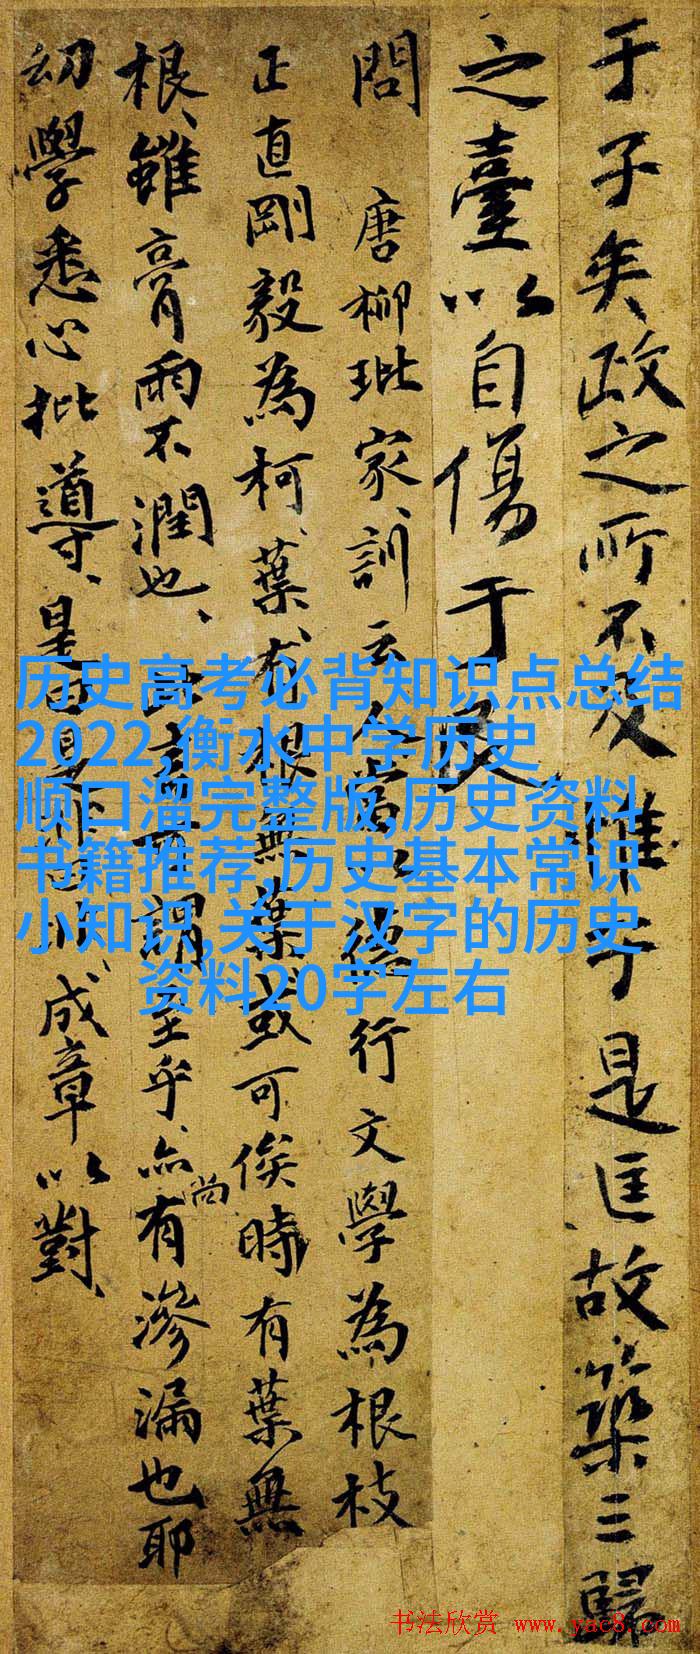 于子矣政之所不及惟于是匡故築三歸
之臺以自傷于民
問 唐柳玭家訓云 德行文學為根枝
正直剛毅為柯葉有根無葉或可俟時有葉無
根、雖膏雨不潤也、言可謂至乎、亦尚有滲漏也耶
幼學悉心批導、是成章以對、
历史高考必背知识点总结
2022,衡水中学历史
顺口溜完整版,历史资料
书籍推荐,历史基本常识
小知识,关于汉字的历史
资料20字左右
书法欣赏 www.yac8.com